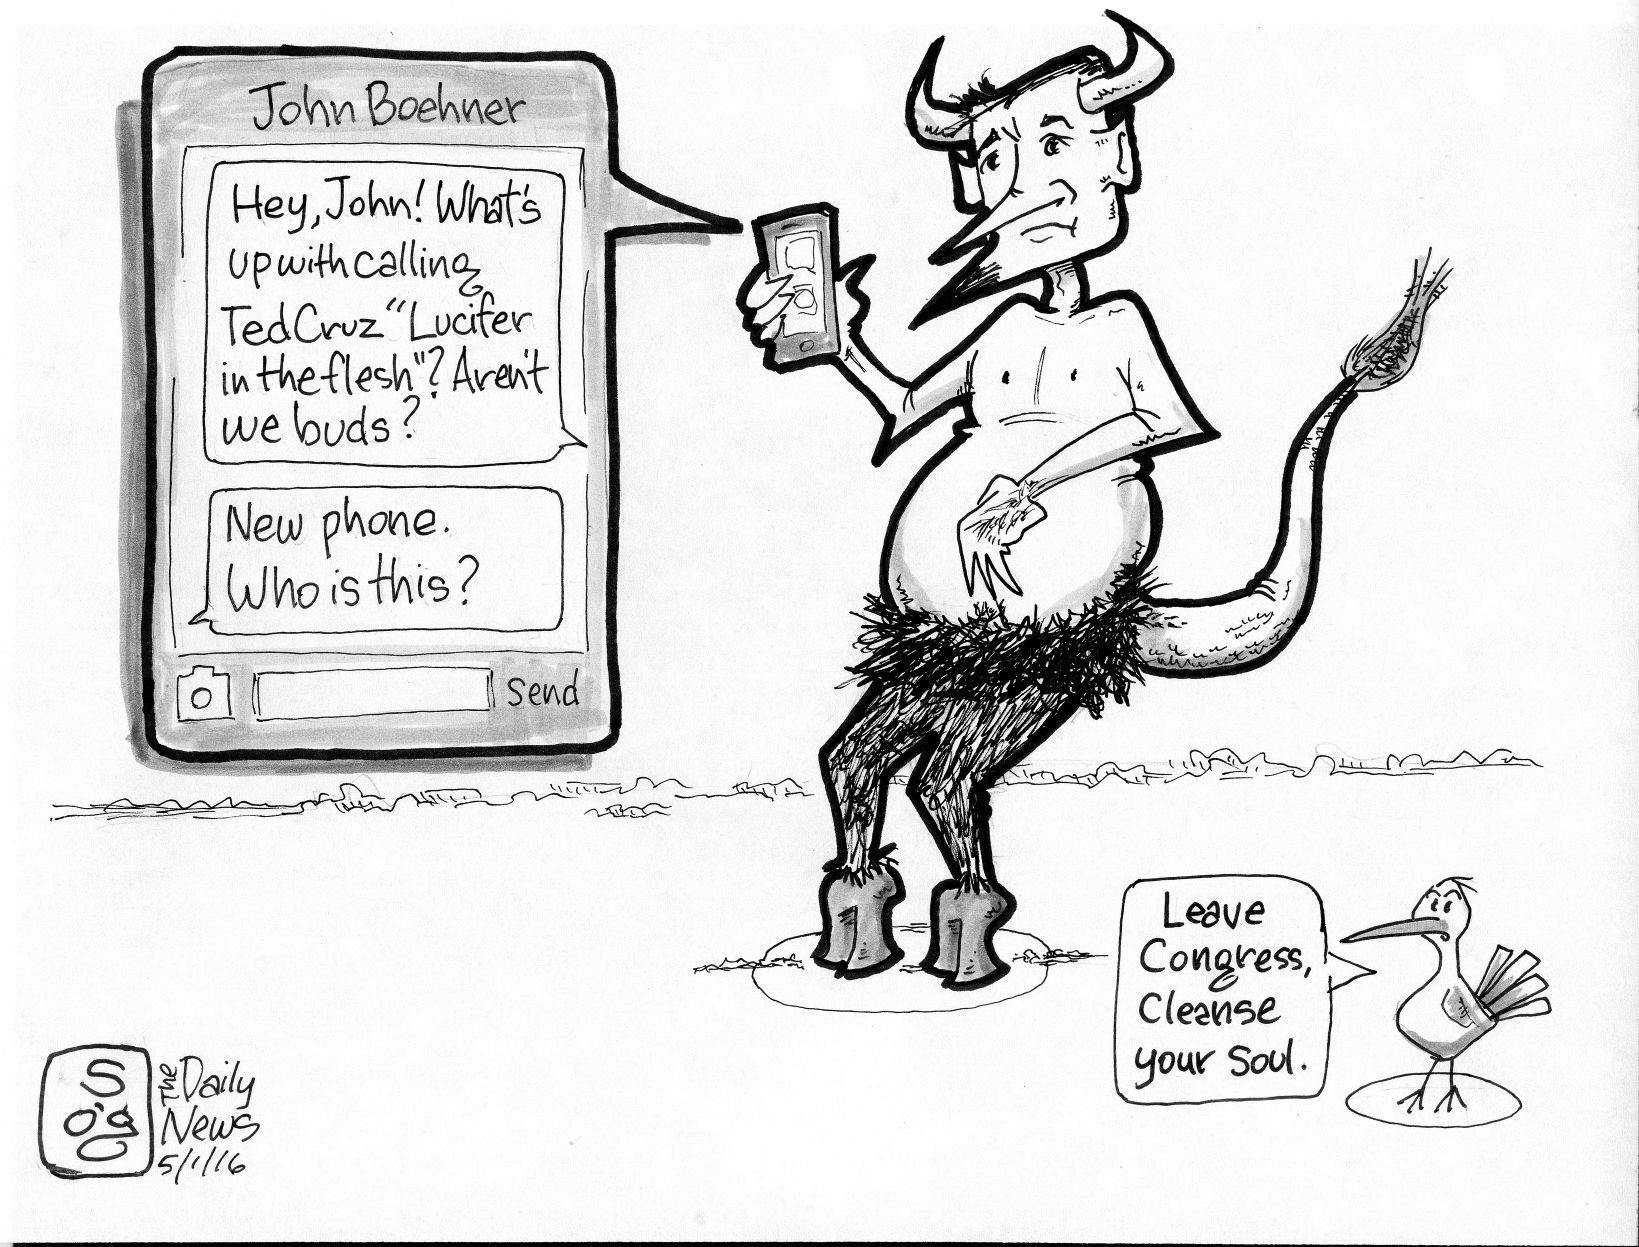 John Boehner
Hey, John! What's
up with calling
Ted Cruz "Lucifer
in the flesh"? Aren't
we buds?
New phone.
Who is this?
Send
Leave
Congress,
Cleanse
your Soul.
The
Daily
News
5/1/16